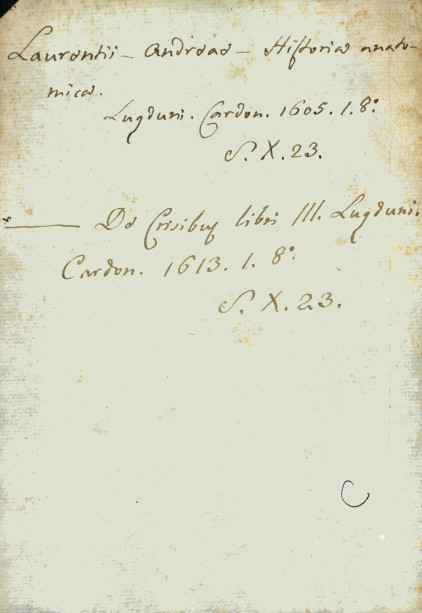 Laurentii - Andreae - Historia anato-
mica.
Lugduni. Cardon. 1605. 1. 8º.
S. X. 23.
x ——— De Crisibus libri III. Lugduni.
Cardon. 1613. 1. 8º.
S. X. 23.
C